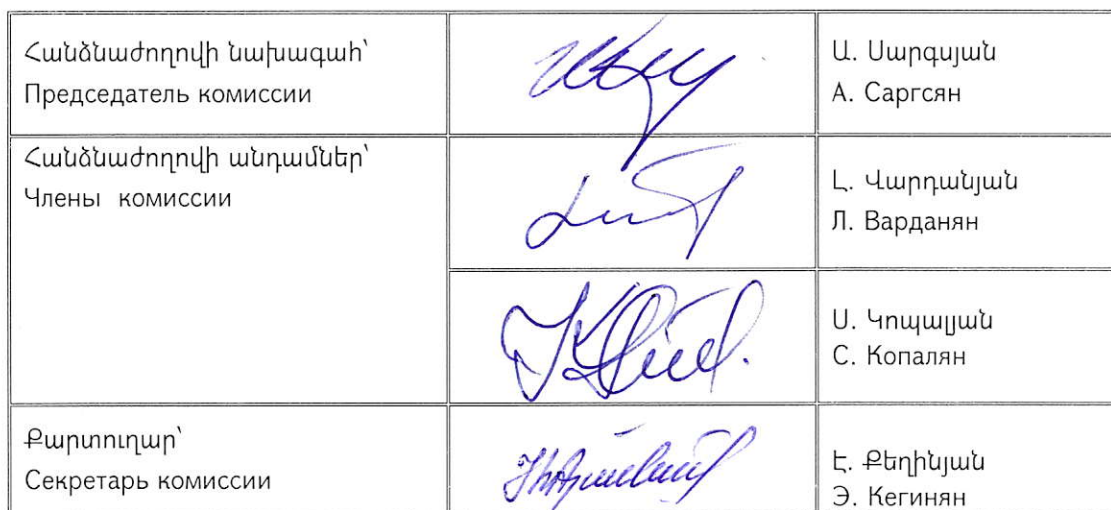 Հանձնաժողովի նախագահ՝
Председатель комиссии
Ա. Սարգսյան
А. Саргсян
Հանձնաժողովի անդամներ՝
Члены комиссии
Լ. Վարդանյան
Л. Варданян
Ս. Կոպալյան
С. Копалян
Քարտուղար՝
Секретарь комиссии
Է. Քեղինյան
Э. Кегинян